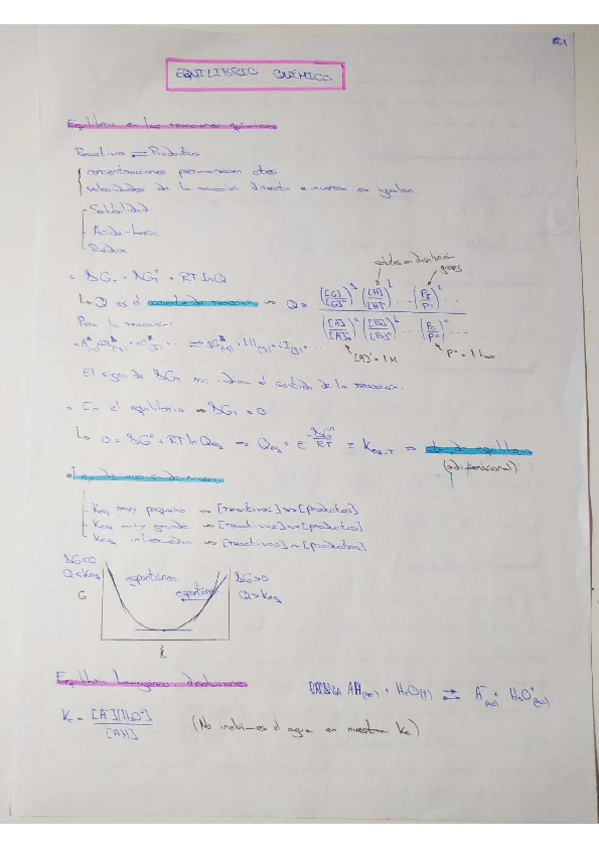 EQUILIBRIO QUÍMICO
Equilibrio en las reacciones químicas
Reactivos ⇌ Productos
concentraciones permanecen ctes
velocidades de la reacción directa e inversa se igualan.
Solubilidad
Ácido-base
Redox
ΔG_T = ΔG_T° + RT lnQ
Q es el cociente de reacción → Q =
Para la reacción:
[A]° = 1 M
El signo de ΔG_T nos indica el sentido de la reacción.
En el equilibrio → ΔG_T = 0
0 = ΔG° + RT ln Q_eq → Q_eq = e^(-ΔG°/RT) ≡ K_eq,T ⇒ cte de equilibrio
(adimensional)
Ley de acción de masas
K_eq muy pequeño → [reactivos] >> [productos]
K_eq muy grande → [reactivos] << [productos]
K_eq intermedia → [reactivos] ~ [productos]
ΔG<0
Q<K_eq
espontáneo
ΔG>0
Q>K_eq
G
Equilibrio homogéneo disoluciones
AH(ac) + H₂O(l) ⇌ A⁻(ac) + H₃O⁺(ac)
K_c = [A⁻][H₃O⁺] / [AH] (No incluimos el agua en nuestra K_c)